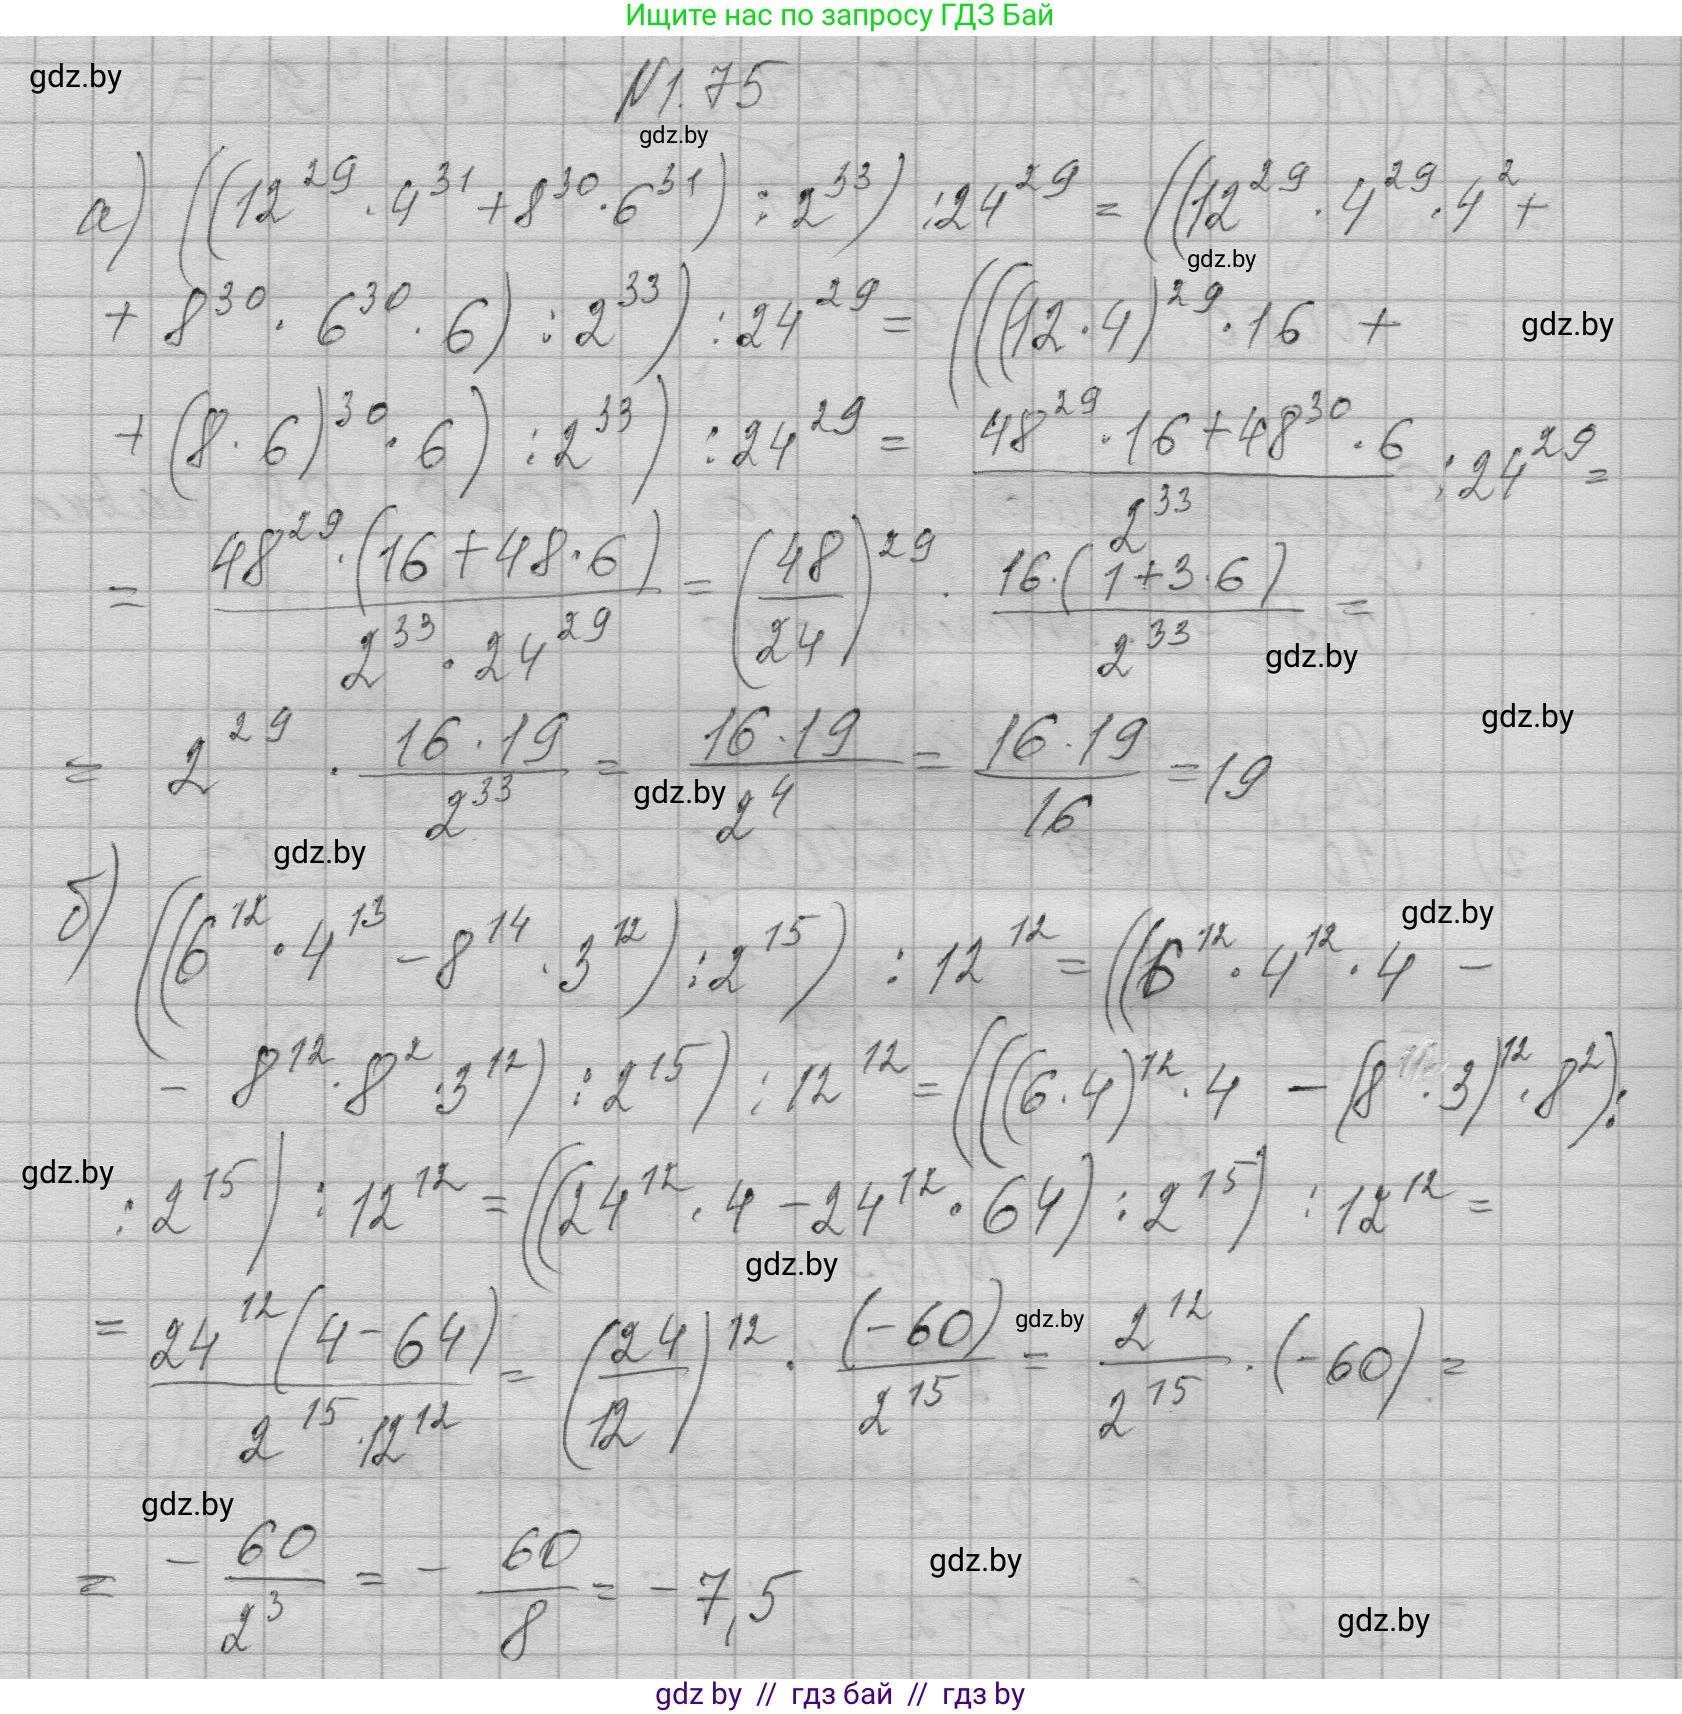 Ищите нас по запросу ГДЗ Бай
gdz.by
№1.75
gdz.by
а) ((12^29 · 4^31 + 8^30 · 6^31) : 2^33) : 24^29 = ((12^29 · 4^29 · 4^2 +
gdz.by
+ 8^30 · 6^30 · 6) : 2^33) : 24^29 = (((12 · 4)^29 · 16 +
gdz.by
+ (8 · 6)^30 · 6) : 2^33) : 24^29 = (48^29 · 16 + 48^30 · 6)/2^33 : 24^29 =
= 48^29 · (16 + 48 · 6)/(2^33 · 24^29) = (48/24)^29 · 16 · (1 + 3 · 6)/2^33 =
gdz.by
gdz.by
= 2^29 · 16 · 19/2^33 = 16 · 19/2^4 = 16 · 19/16 = 19
gdz.by
gdz.by
б) ((6^12 · 4^13 - 8^14 · 3^12) : 2^15) : 12^12 = ((6^12 · 4^12 · 4 -
gdz.by
- 8^12 · 8^2 · 3^12) : 2^15) : 12^12 = (((6 · 4)^12 · 4 - (8 · 3)^12 · 8^2) :
gdz.by
: 2^15) : 12^12 = ((24^12 · 4 - 24^12 · 64) : 2^15) : 12^12 =
gdz.by
= 24^12 (4 - 64)/(2^15 · 12^12) = (24/12)^12 · (-60)/2^15 = 2^12/2^15 · (-60) =
gdz.by
gdz.by
= - 60/2^3 = - 60/8 = - 7,5
gdz.by
gdz.by
gdz by // гдз бай // гдз by